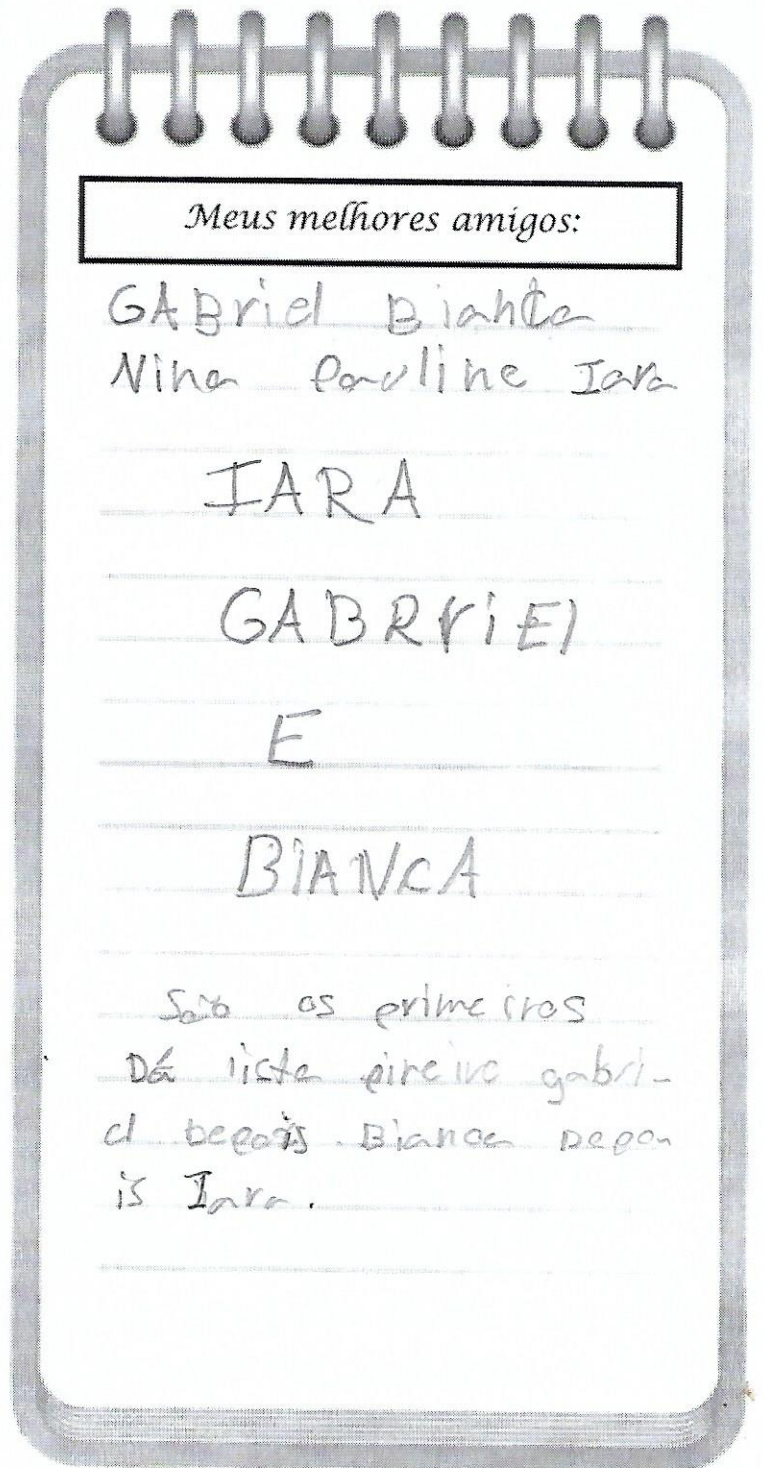 Meus melhores amigos:
GABriel Bianca
Nina Pauline Iara
IARA
GABRriEl
E
BiANCA
São os primeiros
Dá lista pireiro gabri-
el Depois Bianca Depoa
is Iara.